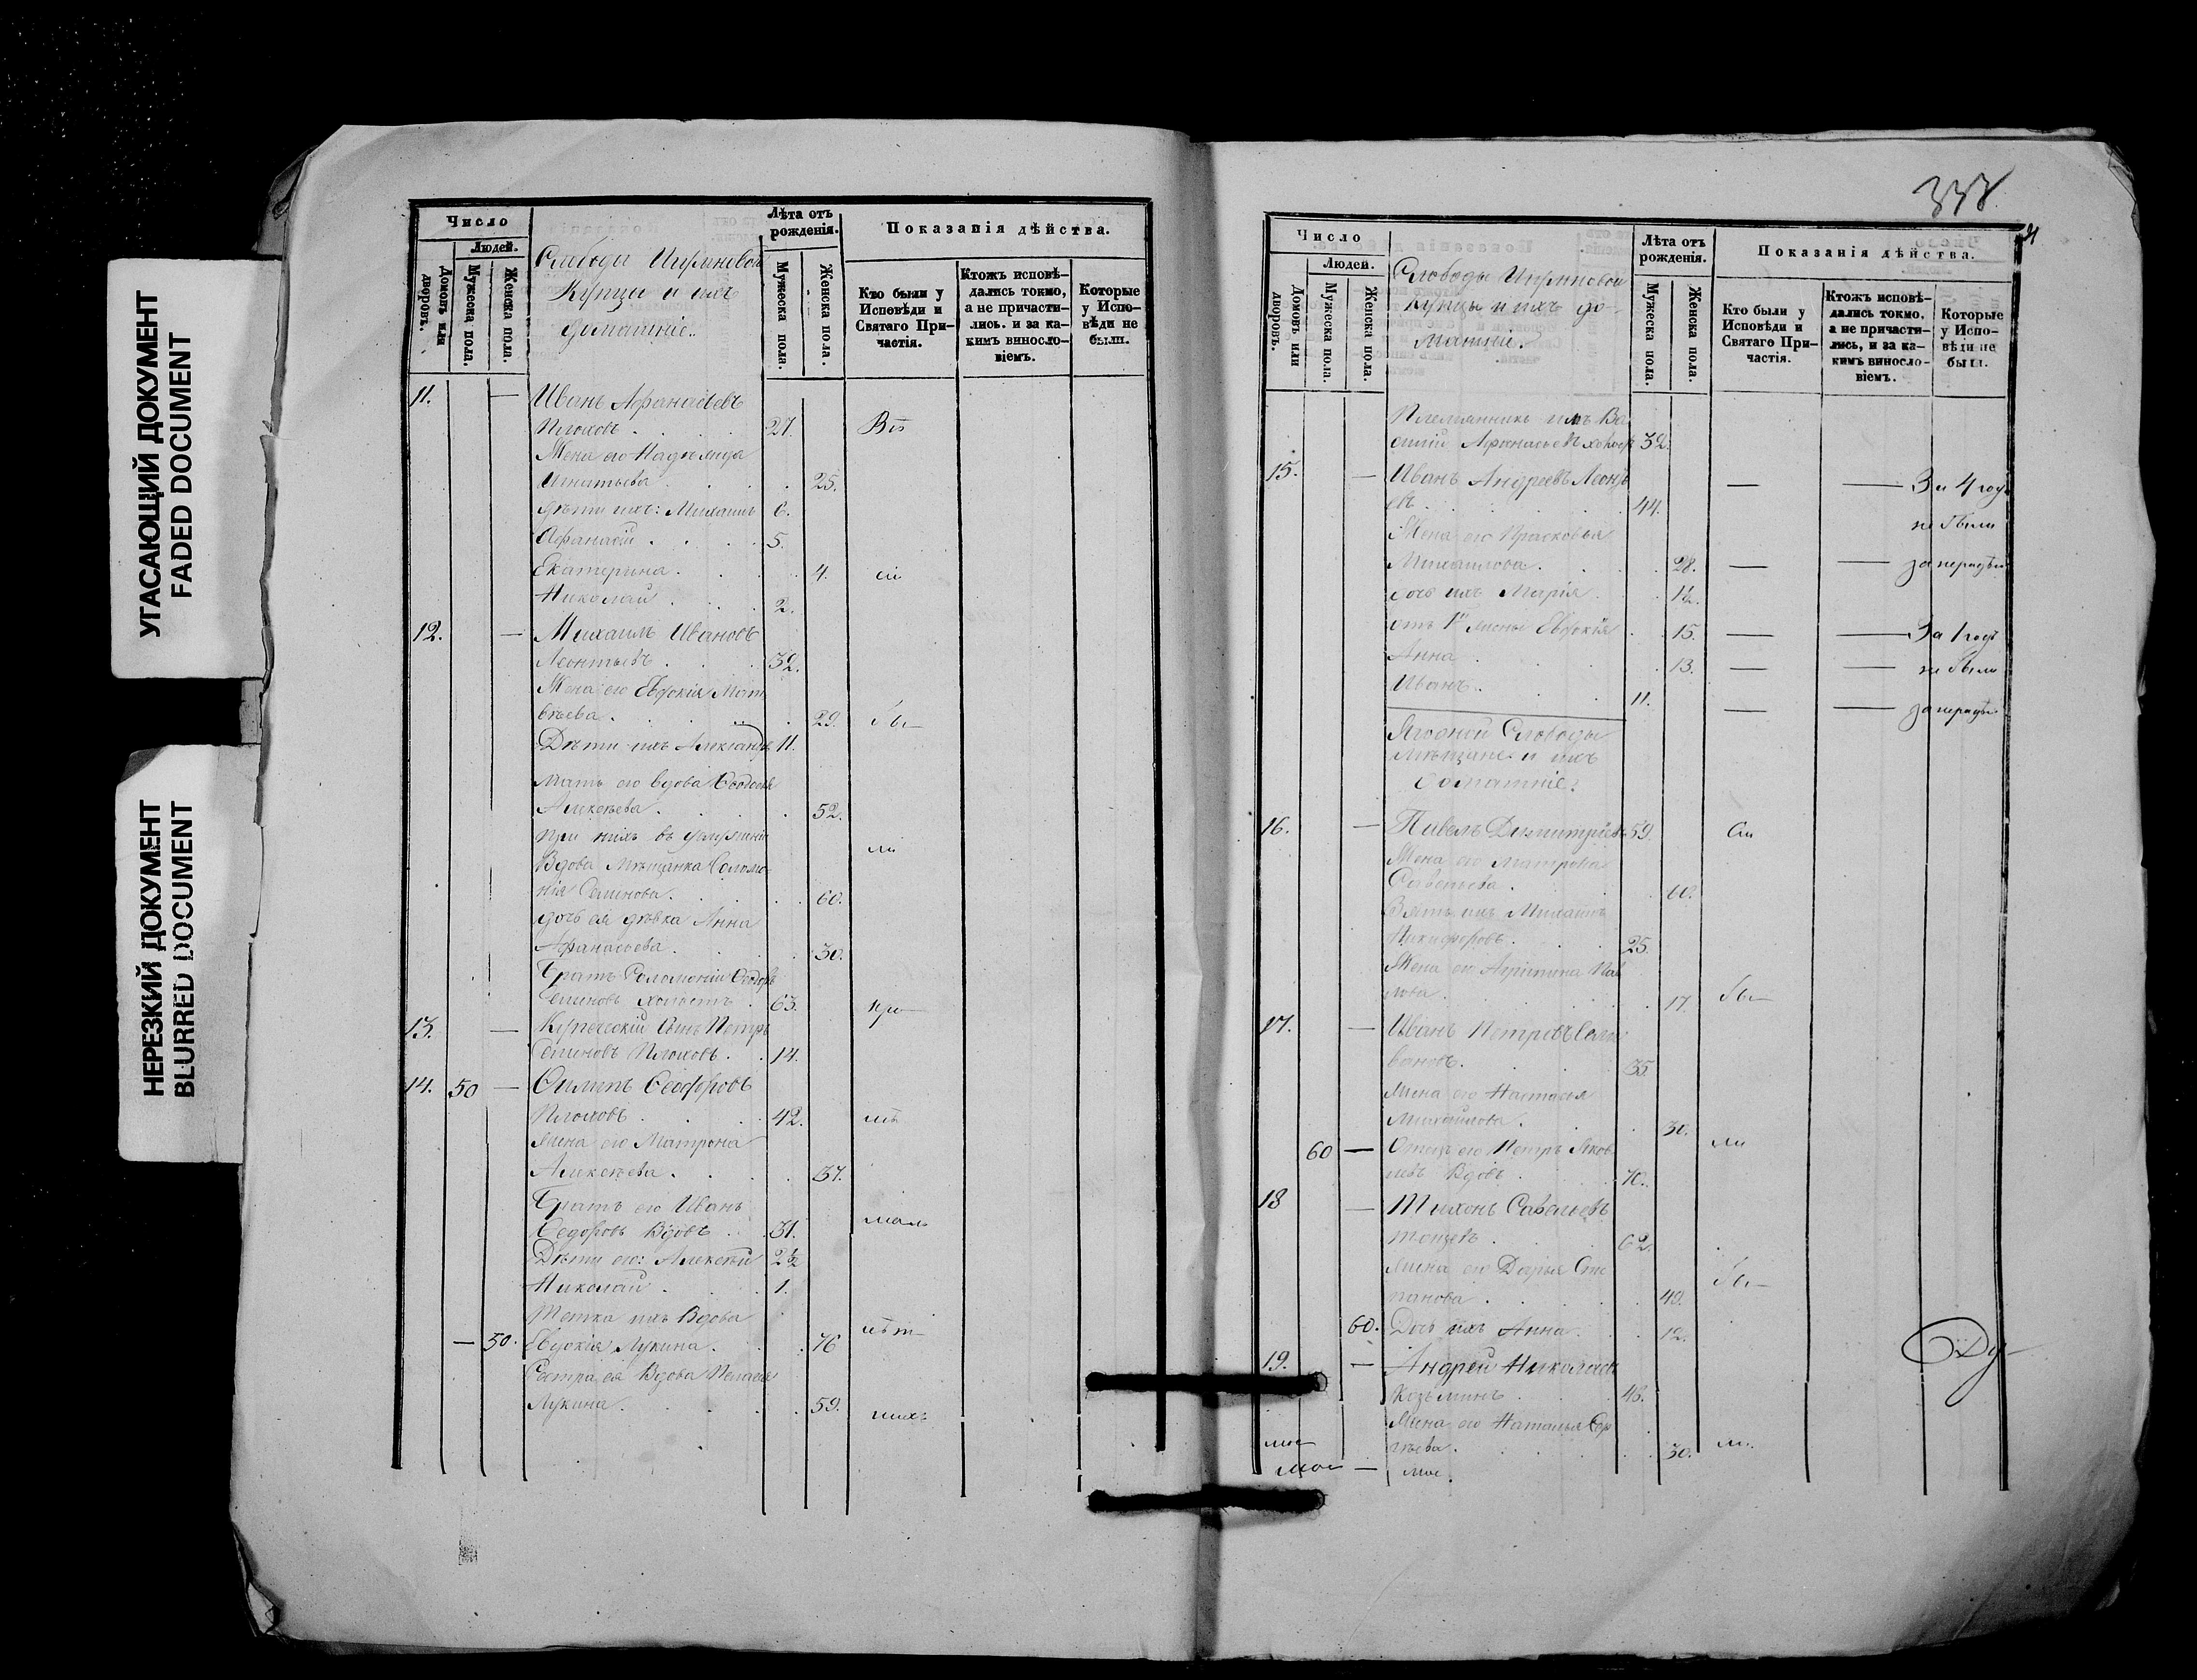 УГАСАЮЩИЙ ДОКУМЕНТ
FADED DOCUMENT
НЕРЕЗКИЙ ДОКУМЕНТ
BLURRED DOCUMENT
Число
Людей.
Домовъ или дворовъ.
Мужеска пола.
Женска пола.
Слободы
Купцы и ихъ
домашніе.
Лѣта отъ рожденія.
Мужеска пола.
Женска пола.
Показанія дѣйства.
Кто были у Исповѣди и Святаго Причастія.
Ктожъ исповѣдались токмо, а не причастились. и за какимъ винословіемъ.
Которые у Исповѣди не были.
11. — Иванъ Афанасьевъ
Плоховъ . . . 27.
Жена его Надежда
Игнатьева . . . 25.
Дѣти ихъ: Михаилъ 6.
Афанасій . . . 5.
Екатерина . . . 4.
Николай . . . 2.
12. — Михаилъ Ивановъ
Леонтьевъ . . . 32.
Жена его Евдокія Мат
вѣева . . . 29.
Дѣти ихъ Александръ 11.
Мать его вдова Ѳеодосья
Алексѣева . . . 52.
При нихъ въ
Вдова Мѣщанка Соломо-
нія Семенова . . . 60.
дочь ея дѣвка Анна
Афанасьева . . . 30.
Братъ Соломоніи Ѳедоръ
Семеновъ холостъ . 63.
13. — Купеческій сынъ Петръ
Семеновъ Плоховъ . . 14.
14. 50 — Филипъ Ѳеодоровъ
Плоховъ . . . 42.
жена его Матрона
Алексѣева . . . 37.
Братъ его Иванъ
Ѳедоровъ Вдовъ . . 31.
Дѣти его: Алексѣй 2½
Николай . . . 1.
Тетка ихъ Вдова
— 50. Евдокія Лукина . . . 76
Сестра ея Вдова Пелагея
Лукина . . . 59.
Число
Людей.
Домовъ или дворовъ.
Мужеска пола.
Женска пола.
Слободы
Купцы и ихъ до-
машніи.
Лѣта отъ рожденія.
Мужеска пола.
Женска пола.
Показанія дѣйства.
Кто были у Исповѣди и Святаго Причастія.
Ктожъ исповѣдались токмо, а не причастились, и за какимъ винословіемъ.
Которые у Исповѣди не были.
Племянникъ имъ Ва
силій Афанасьевъ 32.
15. — Иванъ Андреевъ Леонть
евъ . . . 44. — — За 4 года
не были
Жена его Прасковья
Михайлова . . . 28. — — за нерадѣн
дочь ихъ Марія . . . 12.
отъ 1й жены Евдокія . . 15. — — За 1 годъ
Анна . . . 13. — — не были
Иванъ . . . 11. — — за нерадѣ
Ягодной Слободы
мѣщане и ихъ
домашніе.
16. — Павелъ Димитріевъ 59.
Жена его Матрона
Савельева . . . 60.
Зять ихъ Михаилъ
Никифоровъ . . . 25.
Жена его Агрипина Пав
лова . . . 17.
17. — Иванъ Петровъ Сели
вановъ . . . 35.
жена его Настасья
Михайлова . . . 30.
60 — Отецъ его Петръ Яков
левъ Вдовъ . . . 70.
18 — Тихонъ Савельевъ
62.
жена его Дарья Сте
панова . . . 49.
60. Дочь ихъ Анна . . . 12.
19. — Андрей Николаевъ
Козьминъ . . . 48.
Жена его Наталья Сер
гѣева . . . 30.